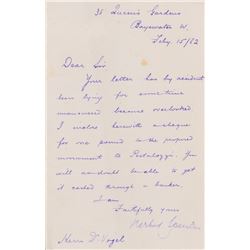 38 Queen's Gardens
Bayswater W.
Feby 15/82
Dear Sir
Your letter has by accident
been lying for some time
unanswered because overlooked
I enclose herewith a cheque
for one pound to the proposed
monument to Pestalozzi. You
will no doubt be able to get
it cashed through a banker
I am
Faithfully yours
Herbert Spencer
Herrn Dr Vogel